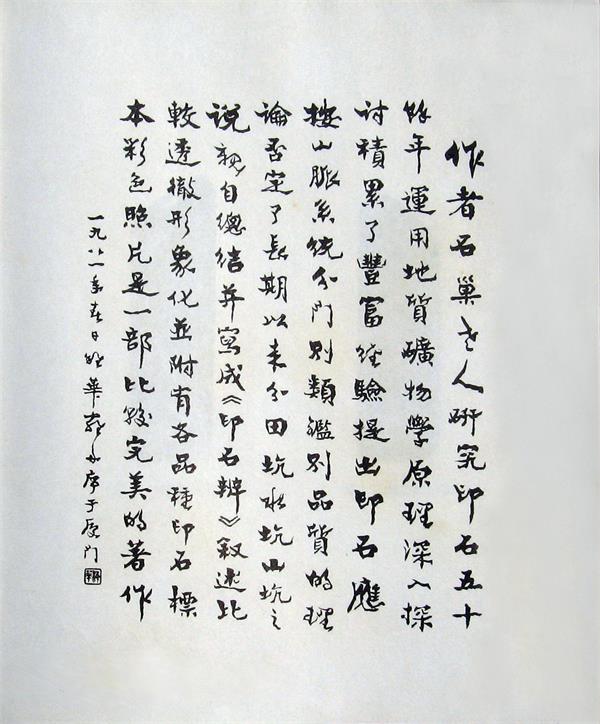 作者石巢老人研究印石五十
餘年運用地質礦物學原理深入探
討積累了豐富经驗提出印石應
按山脈系统分門别類鑑别品質的理
論否定了長期以来分田坑水坑山坑之
说親自總結并寫成《印石辨》叙述比
較透徹形象化並附有各品種印石標
本彩色照片是一部比較完美的著作
一九八一年春日 華 序于厦门